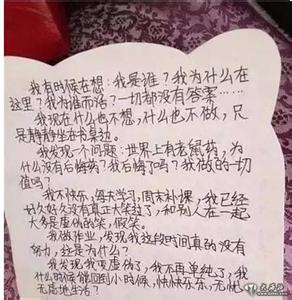 我有时候在想：我是谁？我为什么在
这里？我为谁而活？一切都没有答案……
我现在什么也不想，什么也不做，只
是静静坐在书桌边。
我发现一个问题：世界上有老鼠药，为
什么没有后悔药？我后悔了吗？我做的一切
值吗？
我不快乐，每天学习，周末补课，我已经
好久好久没有真正大笑过了，和别人在一起
大多是虚伪的笑，假笑。
我做作业，发现我这段时间真的没有
努力，这是为什么？
我发现我变虚伪了，我不再单纯了，我
什么时候能回到小时候，快快乐乐，无忧
无虑地生活？